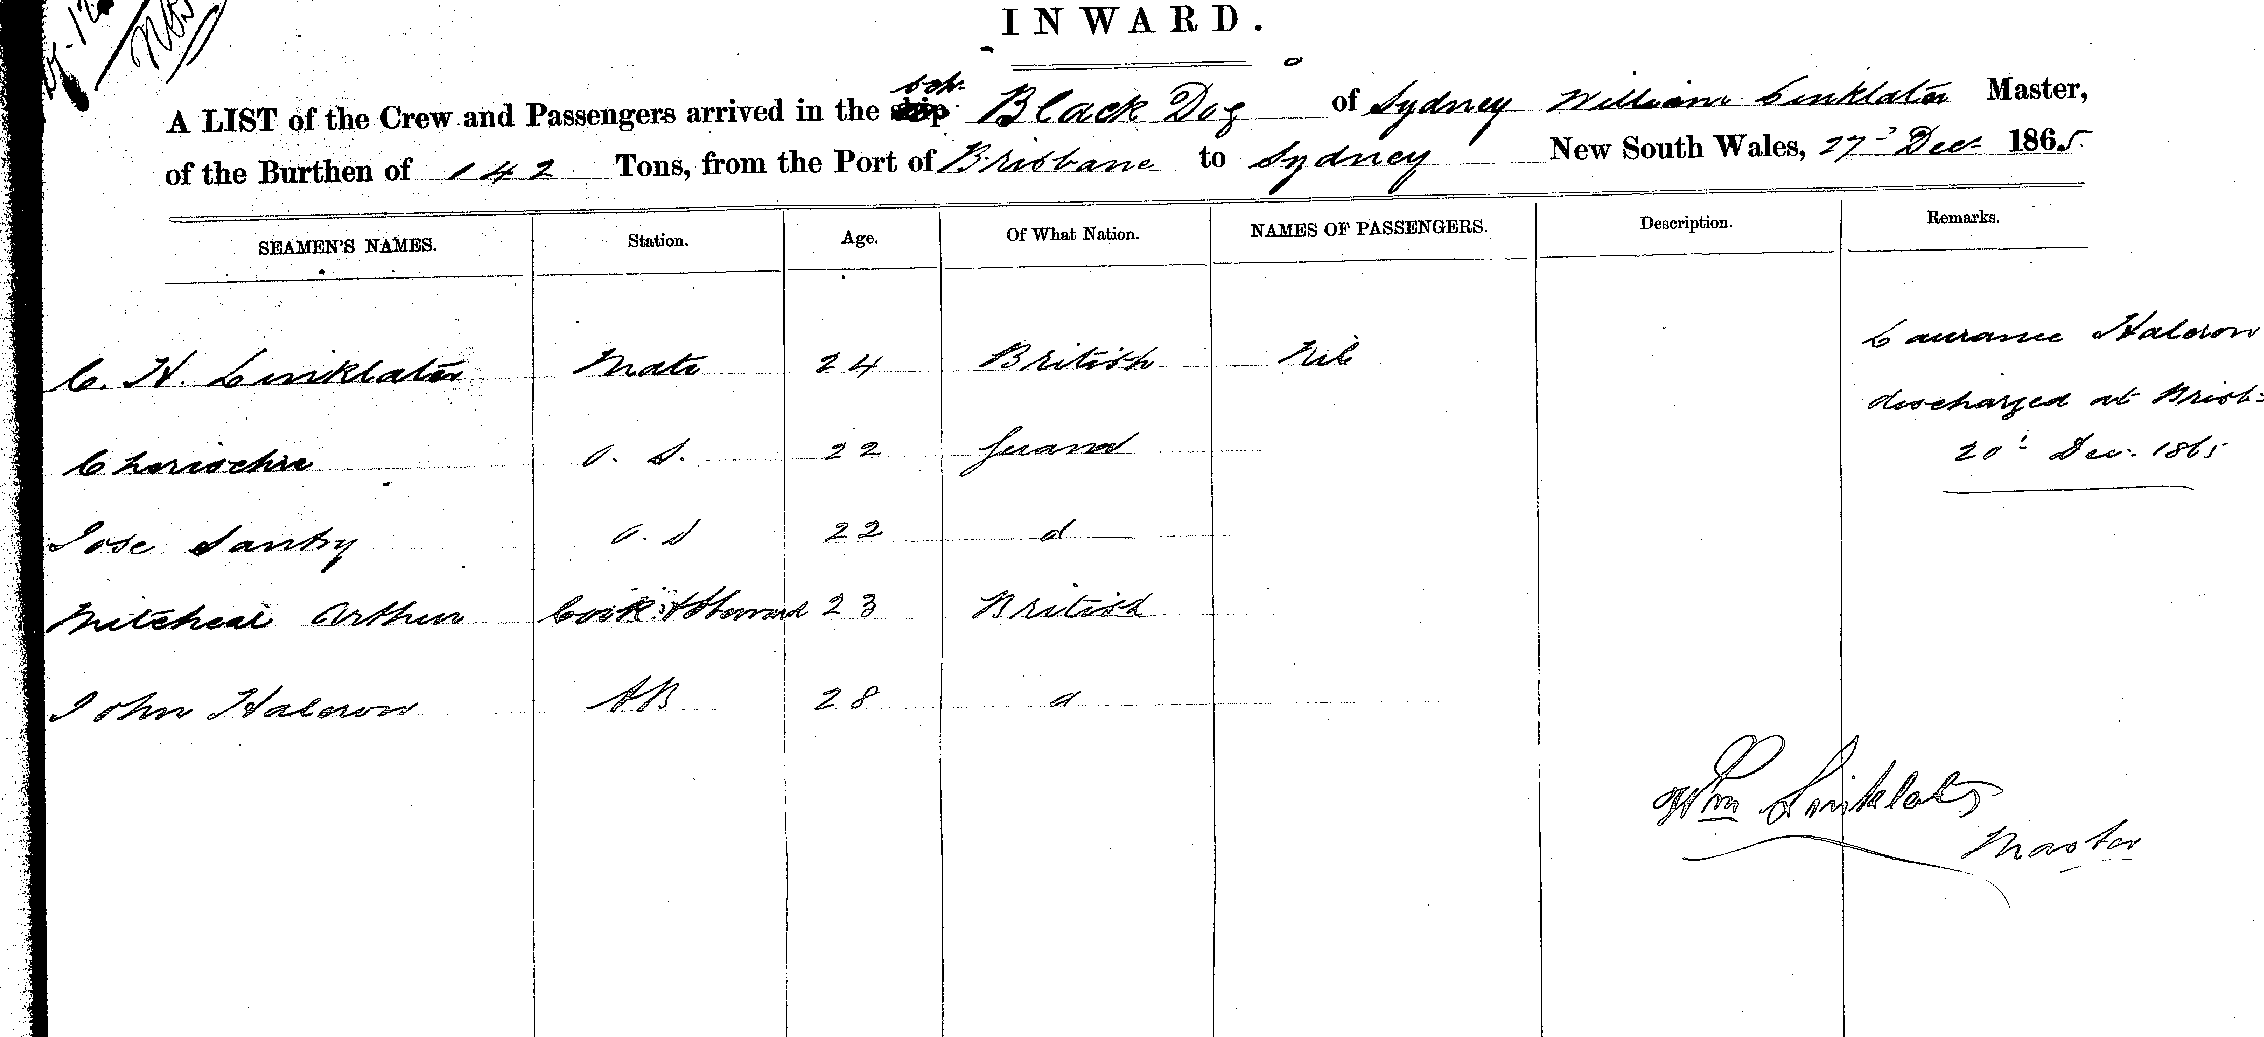 INWARD.
A LIST of the Crew and Passengers arrived in the sch. Black Dog of Sydney William Linklater Master,
of the Burthen of 142 Tons, from the Port of Brisbane to Sydney New South Wales, 27 Dec 1865.
SEAMEN'S NAMES. Station. Age. Of What Nation. NAMES OF PASSENGERS. Description. Remarks.
C. H. Linklater Mate 24 British Nil Laurance Halcrow
discharged at Brisb:
O. S. 22 20 Dec. 1865
Jose O. S 22 d
Mitcheal Arthur Cook & Steward 23 British
John Halcrow AB 28 d
Wm Linklater
Master